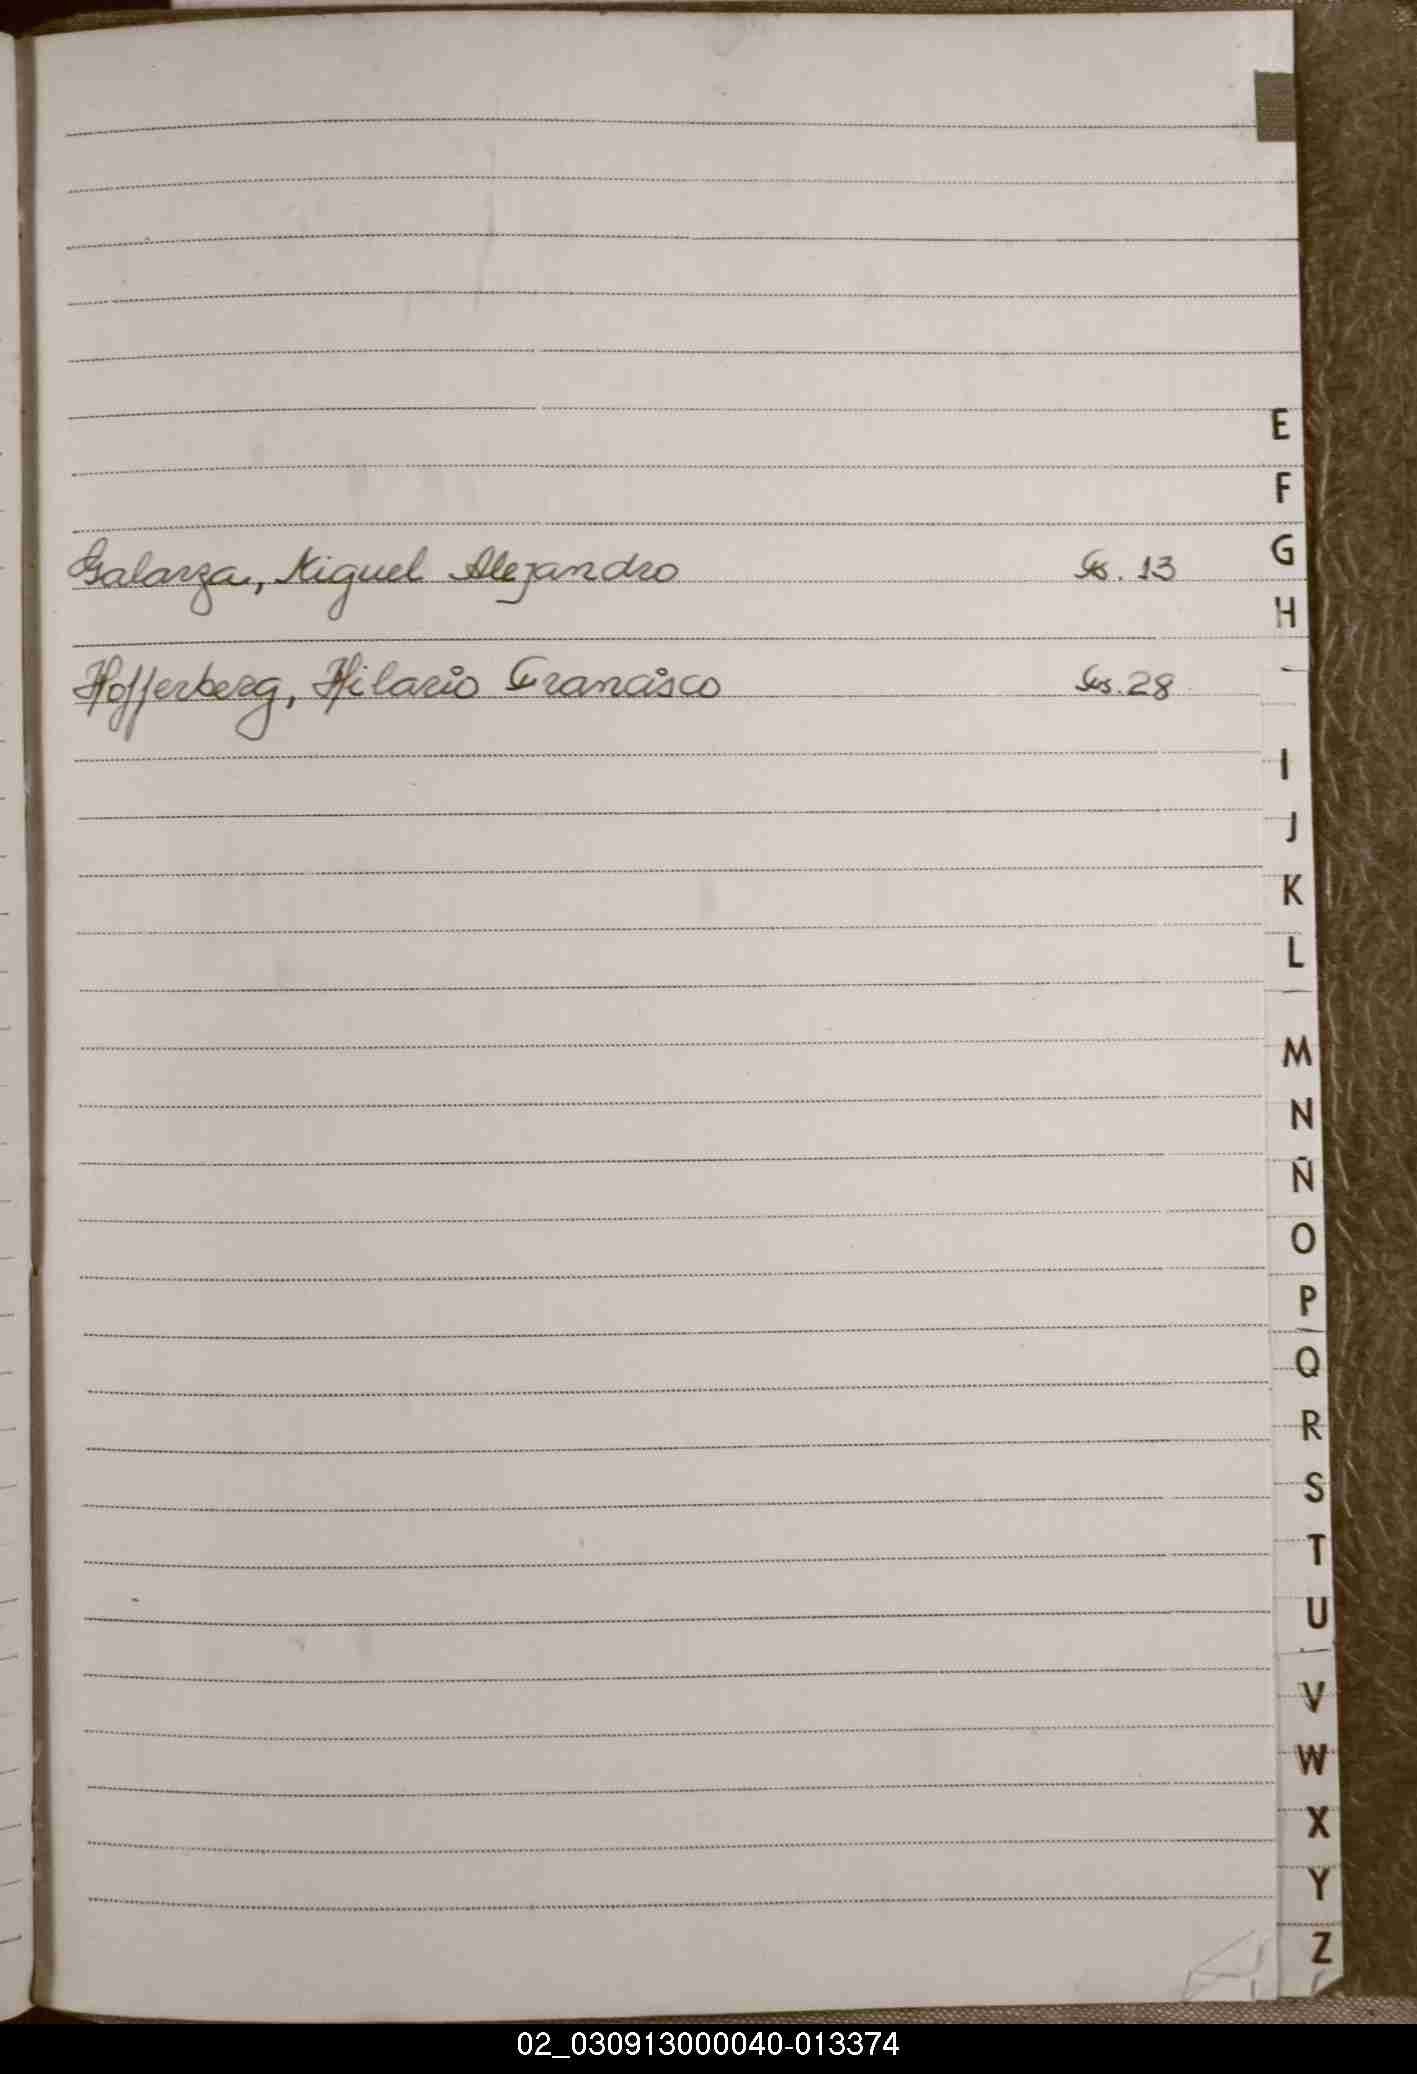 E
F
Galarza, Miguel Alejandro Fs. 13 G
H
Hofferberg, Hilario Francisco Fs. 28
I
J
K
L
M
N
Ñ
O
P
Q
R
S
T
U
V
W
X
Y
Z
02_030913000040-013374